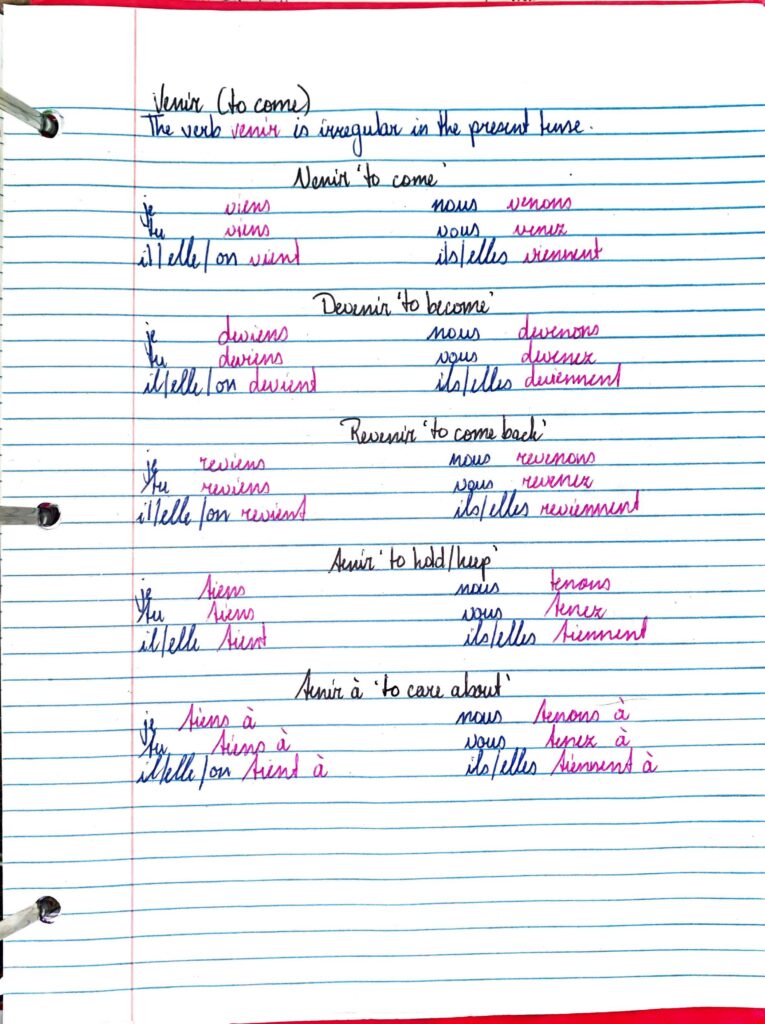 Venir (to come)
The verb venir is irregular in the present tense.
Venir 'to come'
je viens nous venons
tu viens vous venez
il/elle/on vient ils/elles viennent
Devenir 'to become'
je deviens nous devenons
tu deviens vous devenez
il/elle/on devient ils/elles deviennent
Revenir 'to come back'
je reviens nous revenons
tu reviens vous revenez
il/elle/on revient ils/elles reviennent
tenir 'to hold/keep'
je tiens nous tenons
tu tiens vous tenez
il/elle tient ils/elles tiennent
tenir à 'to care about'
je tiens à nous tenons à
tu tiens à vous tenez à
il/elle/on tient à ils/elles tiennent à